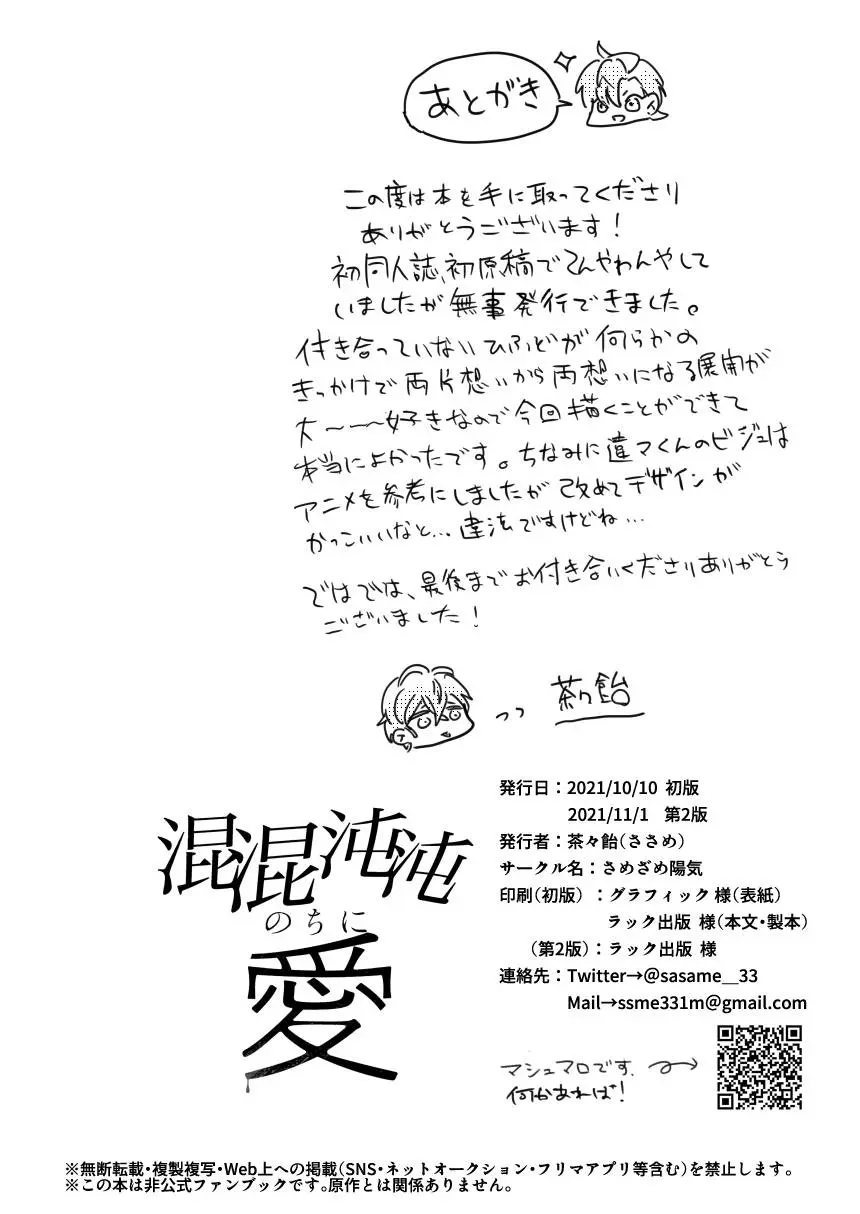 あとがき
この度は本を手に取ってくださり
ありがとうございます!
初同人誌、初原稿でてんやわんやして
いましたが無事発行できました。
付き合っていないひふどが何らかの
きっかけで両片想いから両想いになる展開が
大〜〜〜好きなので今回描くことができて
本当によかったです。ちなみに違マくんのビジュは
アニメを参考にしましたが改めてデザインが
かっこいいなと…違法ですけどね…
ではでは、最後までお付き合いくださりありがとう
ございました!
茶々飴
混混沌沌
のちに
愛
発行日：2021/10/10 初版
2021/11/1 第2版
発行者：茶々飴（ささめ）
サークル名：さめざめ陽気
印刷（初版）：グラフィック 様（表紙）
ラック出版 様（本文・製本）
（第2版）：ラック出版 様
連絡先：Twitter→@sasame__33
Mail→ssme331m@gmail.com
マシュマロです。
何かあれば!
※無断転載・複製複写・Web上への掲載（SNS・ネットオークション・フリマアプリ等含む）を禁止します。
※この本は非公式ファンブックです。原作とは関係ありません。